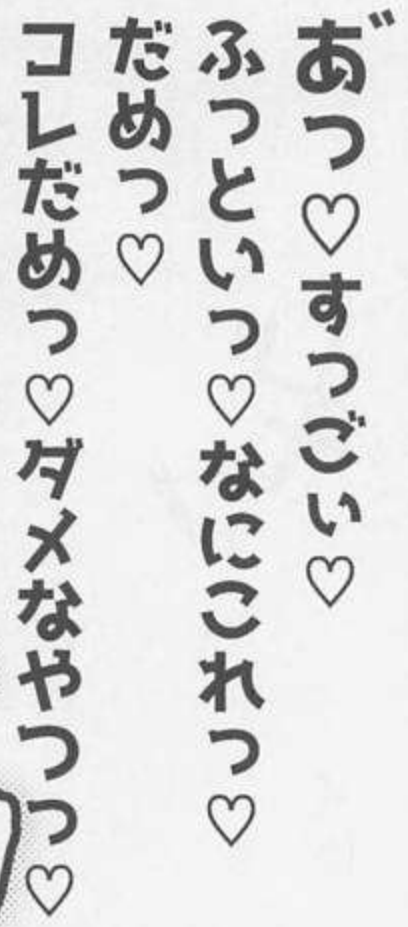 あ゛っ♡すっごぃ♡
ふっといっ♡なにこれっ♡
だめっ♡
コレだめっ♡ダメなやつっ♡